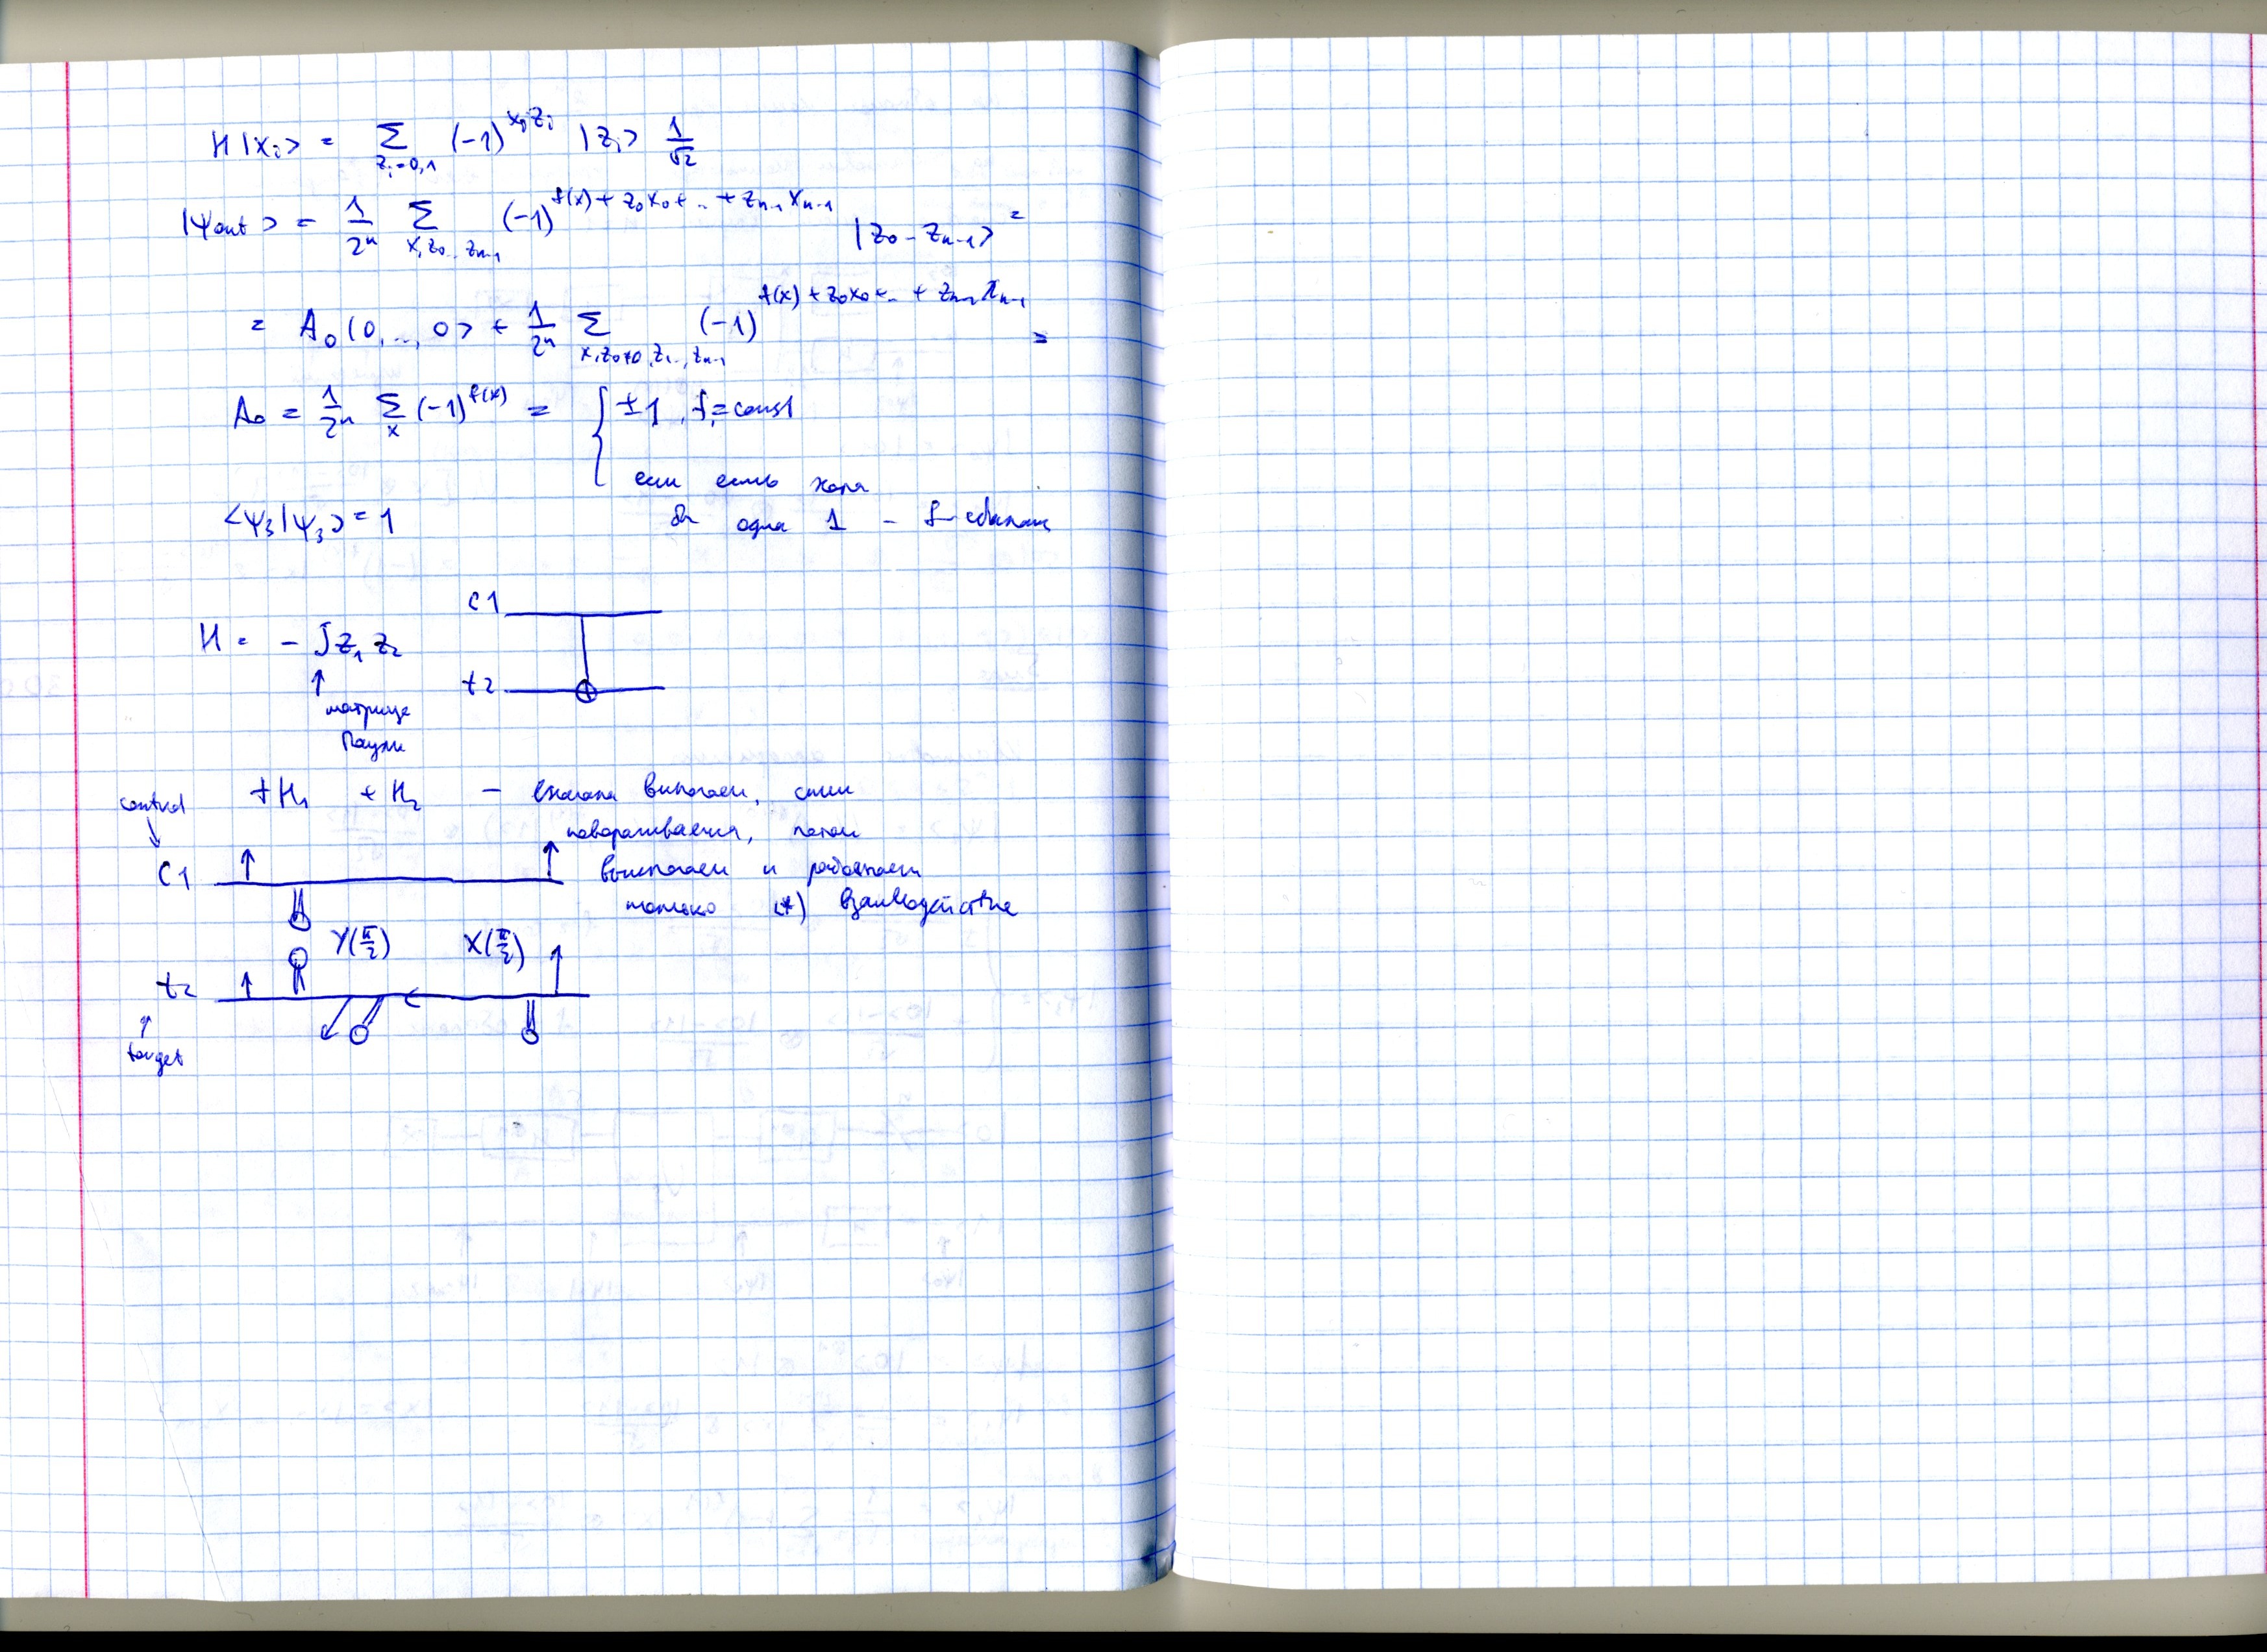 H|xᵢ> = Σ_{zᵢ=0,1} (-1)^{xᵢzᵢ} |zᵢ> 1/√2
|Ψout> = 1/2ⁿ Σ_{x,z₀..zₙ₋₁} (-1)^{f(x)+z₀x₀+..+zₙ₋₁xₙ₋₁} |z₀-zₙ₋₁> =
= A₀|0,..,0> + 1/2ⁿ Σ_{x,z₀≠0,z₁..,zₙ₋₁} (-1)^{f(x)+z₀x₀+..+zₙ₋₁xₙ₋₁} =
A₀ = 1/2ⁿ Σₓ (-1)^{f(x)} = { ±1, f=const
если есть хотя
<Ψ₃|Ψ₃> = 1
бы одна 1 - f
C1
H = - J z₁ z₂
t2
↑
матрицы
Паули
control
+H₁ + H₂ - сначала включаем, спин
поворачивается, потом
C1
выключаем и работает
только (*) взаимодействие
Y(π/2) X(π/2)
t2
↑
target